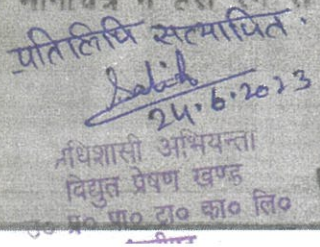 प्रतिलिपि सत्यापित.
24.6.2023
अधिशासी अभियन्ता
विद्युत प्रेषण खण्ड
उ० प्र० पा० ट्रा० का० लि०